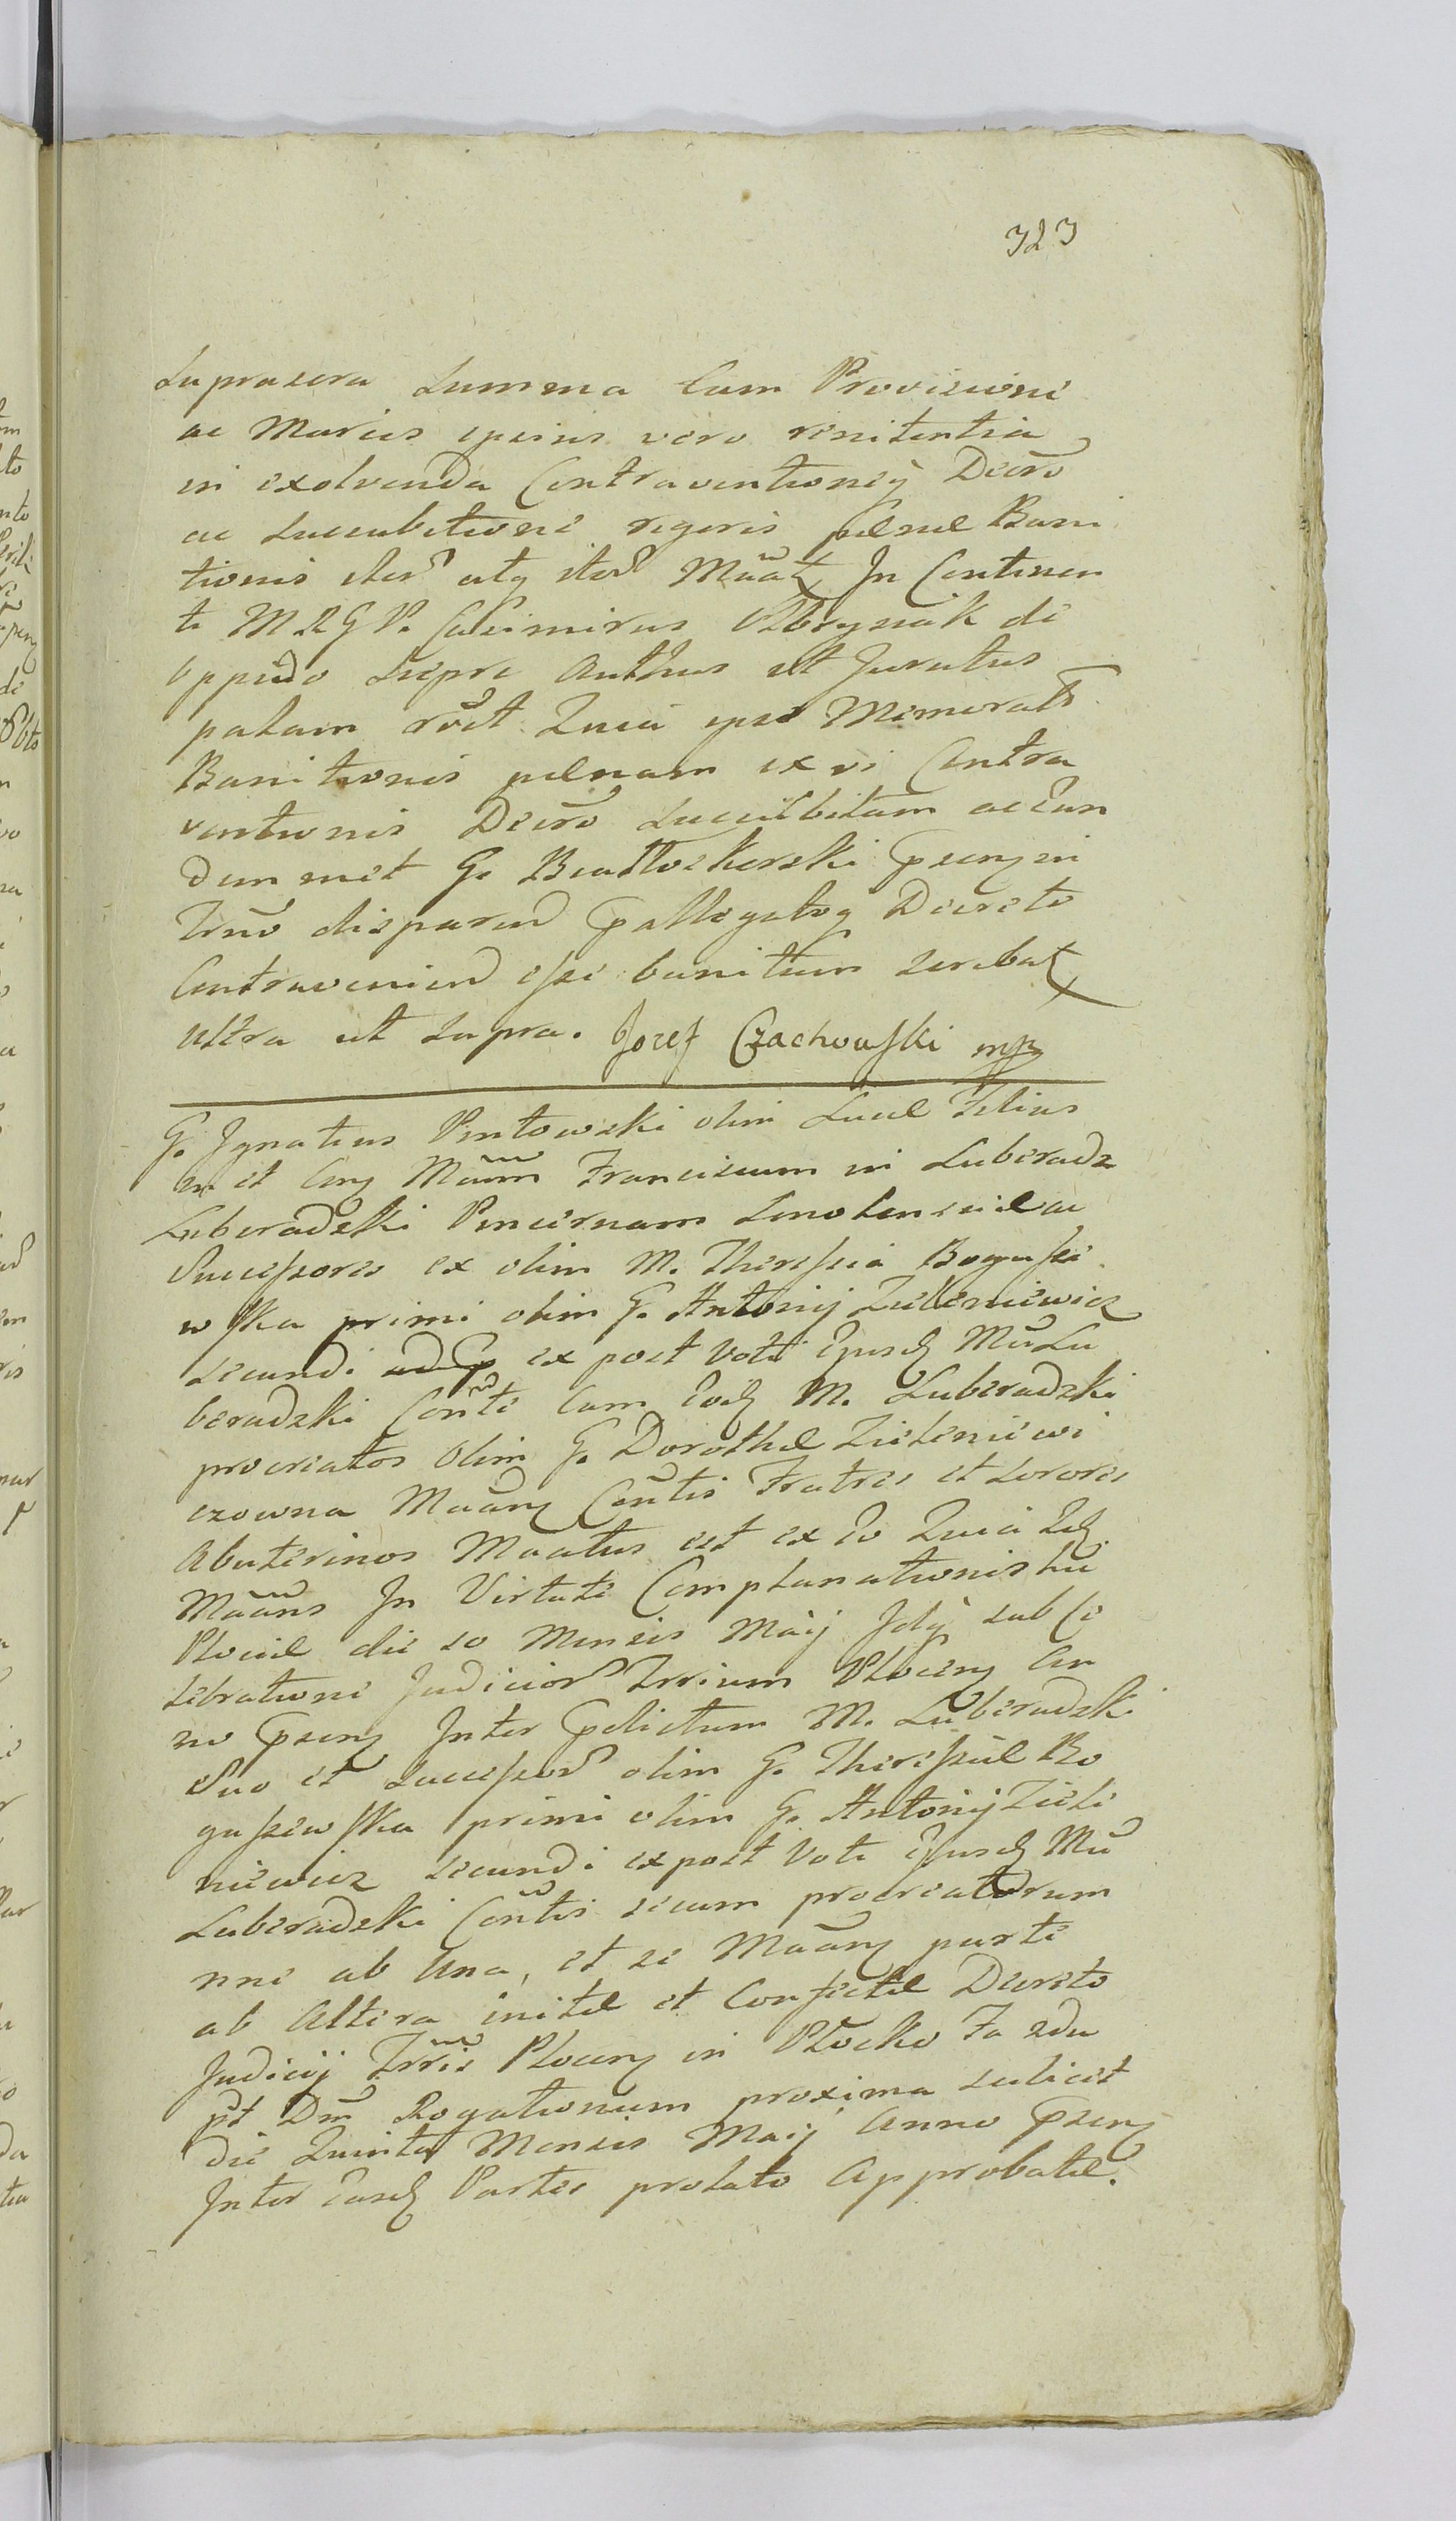 323
Suprascra Summa Cum Provisione
ac Marcis ipsius vero renitentia
in exolvenda Contraventioneq Decro
ac Succubitione rigoris pænæ Bani
tionis uter atq iter Māat In Continen
ti M R G P. Casimirus Obrysiak de
Oppido Sierpc Authus et Juratus
palam rōct Quia ipse Memorat
Banitionis pænam ex vi Contra
ventionis Decro Succubitam ac Eun
dem met G. Białłoskorski psenz in
Trno disparen pallegatoq Decreto
Contravenien esse banitum scribat
ultra ut Supra. Jozef Czachowski mp
G. Ignatius Pintowski olim Lucæ Filius
in et Conz Māam Franciscum in Luberadz
Luberadzki Pincernam Smolenscæ ac
Successores ex olim M. Theressia Bogusse
wska primi olim G. Antonij Zieleniewicz
secundi ex post Voti Ejusd Mu Lu
beradzki Conte Cum Eod M. Luberadzki
procreatos Olim G. Dorotheæ Zieleniewi
czowna Māanz Contis Fratres et Sorores
Abuterinos Maatus est ex Eo Quia Id
Māans In Virtute Complanationis hic
Plociæ die 10 Mensis Maij Idq sub Ce
lebratione Judicior Trrium Plocenz An
no psenz Inter pdictum M. Luberadzki
Suo et Successor olim G. Theressiæ Bo
gussewska primi olim G. Antonij Ziele
niewicz secundi expost Voti Ejusd Mu
Luberadzki Contis secum procreatorum
nne ab Una, et se Māanz parte
ab Altera initæ et Confectæ Decreto
Judicij Trris Plocenz in Płocko Fa 2da
pt Dm Rogationum proxima scilicet
die Quinta Mensis Maij Anno psenz
Inter Easd Partes prolato Approbatæ.